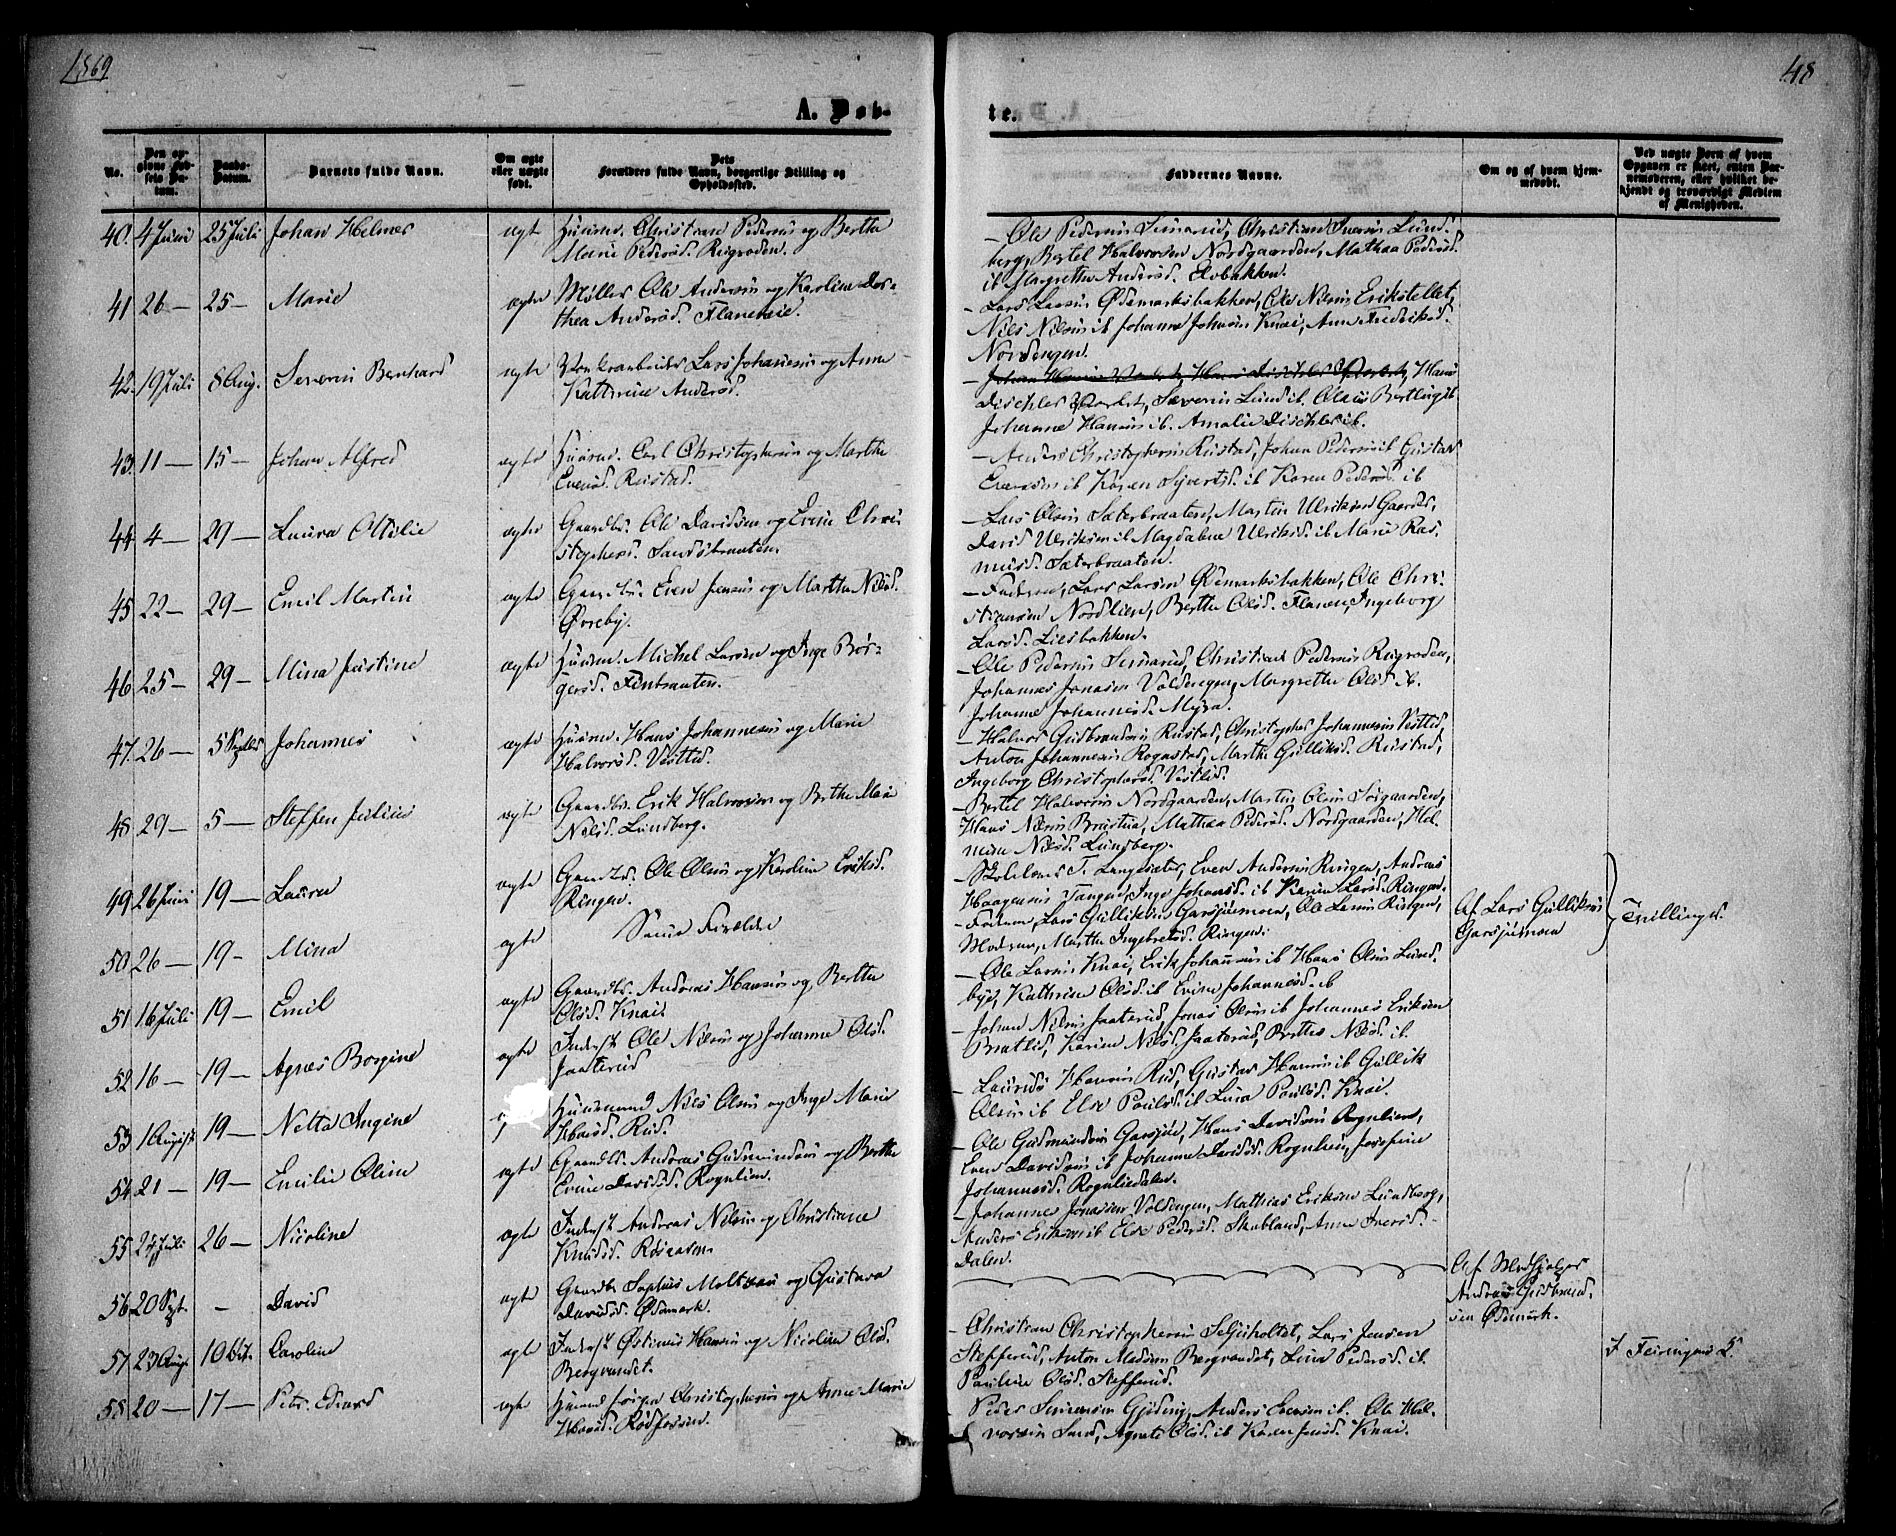 1869
48
A. Døb-
te.
No.
Den op-
givne Fød-
sels Da-
tum.
Daabs-
Datum.
Barnets fulde Navn.
Om ægte
eller uægte
født.
Dets
Forældres fulde Navn, borgerlige Stilling og
Opholdssted.
Faddernes Navne.
Om og af hvem hjem-
medøbt.
Ved uægte Børn af hvem
Opgaven er skeet, enten Bar-
nemoderen, eller hvilket be-
kjendt og troværdigt Medlem
af Menigheden.
40. 4 Juni 25 Juli Johan Helmer ægte Huusm. Christian Pedersen og Berthe
Marie Pedersd. Rigroden.
- Ole Pedersen Simarud, Christian Iversen Lund-
berg, Bertel Halvorsen Nordgaarden, Mathea Pedersd.
ib Margrethe Andersd. Elvbakken.
41 26 — 25 — Marie ægte Møller Ole Andersen og Karoline Dor-
thea Andersd. Flaneveie.
- Lars Larsen Ødemarksbakken, Ole Nilsen Erikstellet,
Nils Nilsen ib Johanne Johnsen Knai, Anne Fredriksd.
Nordengen.
42. 19 Juli 8 Aug. Severin Bernhard ægte Lars Johannesen og Anne
Kathrine Andersd.
Hans
Dischler Severin Lund ib. Olaus Bertling ib
Johanne Hansen ib. Amalie Dischler ib.
43. 11 — 15 — Johan Alfred ægte Huusm. Carl Christophersen og Marthe
Evensd. Rustad.
- Anders Christophersen Rustad, Johan Pedersen ib Gustav
Evensen ib Karen Syvertsd. ib Karen Pedersd. ib
44. 4 — 29 — Laura Ottilie ægte Gaardbr. Ole Davidsen og Evine Chri-
stophersd. Sandsbraaten.
- Lars Olsen Sæterbraaten, Martin Ulriksen Gaarder,
David Ulriksen ib Magdalene Ulriksd. ib Marie Ras-
musd. Sæterbraaten.
45 22 — 29 — Emil Martin ægte Gaardbr. Even Jensen og Marthe Nilsd.
Øvreby.
- Faderen, Lars Larsen Ødemarksbakken, Ole Chri-
stiansen Nordlien, Berthe Olsd. Flanen, Ingeborg
Larsd. Liesbakken.
46 25 — 29 — Mina Justine ægte Huusm. Michel Larsen og Inge Bør-
gersd. Fintraaten.
- Ole Pedersen Simarud, Christian Pedersen Rigroden,
Johannes Jonasen Voldengen, Margrethe Olsd. ib.
Johanne Johannesd. Myra.
47. 26 — 5 Septbr Johannes ægte Huusm. Hans Johannesen og Marie
Halvorsd. Vestlid.
- Halvor Gudbrandsen Rustad, Christopher Johannesen Vestlid,
Anton Johannesen Rognstad, Marthe Gulliksd. Rustad,
Ingeborg Christophersd. Vestlid.
48 29 — 5 — Steffen Julius ægte Gaardbr. Erik Halvorsen og Berthe Marie
Nilsd. Lundberg.
- Bertel Halvorsen Nordgaarden, Martin Olsen Søigaarden,
Hans Nilsen Mathea Pedersd. Nordgaarden, Hel-
mine Nilsd. Lundberg.
49 26 Juni 19 — Laura ægte Gaardbr. Ole Olsen og Karoline Eriksd.
Ringen.
- Skolelærer T. Langesæter, Even Andersen Ringen, Andreas
Haagensen Tangen, Inge Johansd. ib Karen Larsd. Ringen.
50 26 — 19 — Mina ægte Samme Forældre
- Faderen, Lars Gulliksen Garsjømoen, Ole Larsen Ringen,
Moderen, Marthe Ingebretsd. Ringen.
Af Lars Gulliksen
Garsjømoen
Tvillinger.
51 16 Juli 19 — Emil ægte Gaardbr. Andreas Hansen og Berthe
Olsd. Knai.
- Ole Larsen Knai, Erik Johansen ib Hans Olsen Lund-
bye, Kathrine Olsd. ib Evine Johannesd. ib
52 16 — 19 — Agnes Borgine ægte Inderst Ole Nilsen og Johanne Olsd.
Jaaterud
- Johan Nilsen Jaaterud Jonas Olsen ib Johannes Eriksen
Bratlid, Karine Nilsd. Jaaterud, Berthe Nilsd. ib.
53 1 August 19 — Netta Ingine Huusmand Nils Olsen og Inge Marie
Hansd. Rud.
- Laurids Hansen Rud, Gustav Hansen ib Gullik
Olsen ib Else Paulsd. ib Lina Paulsd. Knai.
54 21 — 19 — Emilie Oline ægte Gaardbr. Andreas Gudmundsen og Berthe
Evine Davidsd. Rognlien.
- Ole Gudmundsen Garsjøe, Hans Davidsen Rognlien,
Even Davidsen ib Johanne Davidsd. Rognlien, Josefine
Johannesd. Rognliedalen.
55 24 Juli 26 — Nicoline ægte Inderst Andreas Nilsen og Christiane
Knudsd. Røisaasen.
- Johannes Jonasen Voldengen, Mathias Eriksen Lundberg,
Anders Eriksen ib Else Pedersd. Skabland, Anne Iversd.
Dalen.
56 20 Sept. - David ægte Gaardbr Sophus Moltzau og Gustava
Davidsd. Ødemark.
Af Medhjelper
Andreas Gudbrand-
sen Ødemark.
57 23 Aug. 10 Oct. Caroline ægte Inderst Østinus Hansen og Nicoline Olsd.
Bergvandet.
- Christian Christophersen Seljeholtet, Lars Jensen
Stefferud, Anton Madsen Bergvandet, Lina Pedersd. ib.
Pauline Olsd. Stefferud.
I Feiringens K.
58 20 — 17 — Petr. Edvard ægte Huusmd Jørgen Christophersen og Anne Marie
Hansd. Rødfossen.
- Peder Simensen Gjøding, Anders Evensen ib. Ole Hal-
vorsen Sand, Agnete Olsd. ib Karen Jensd. Knai.